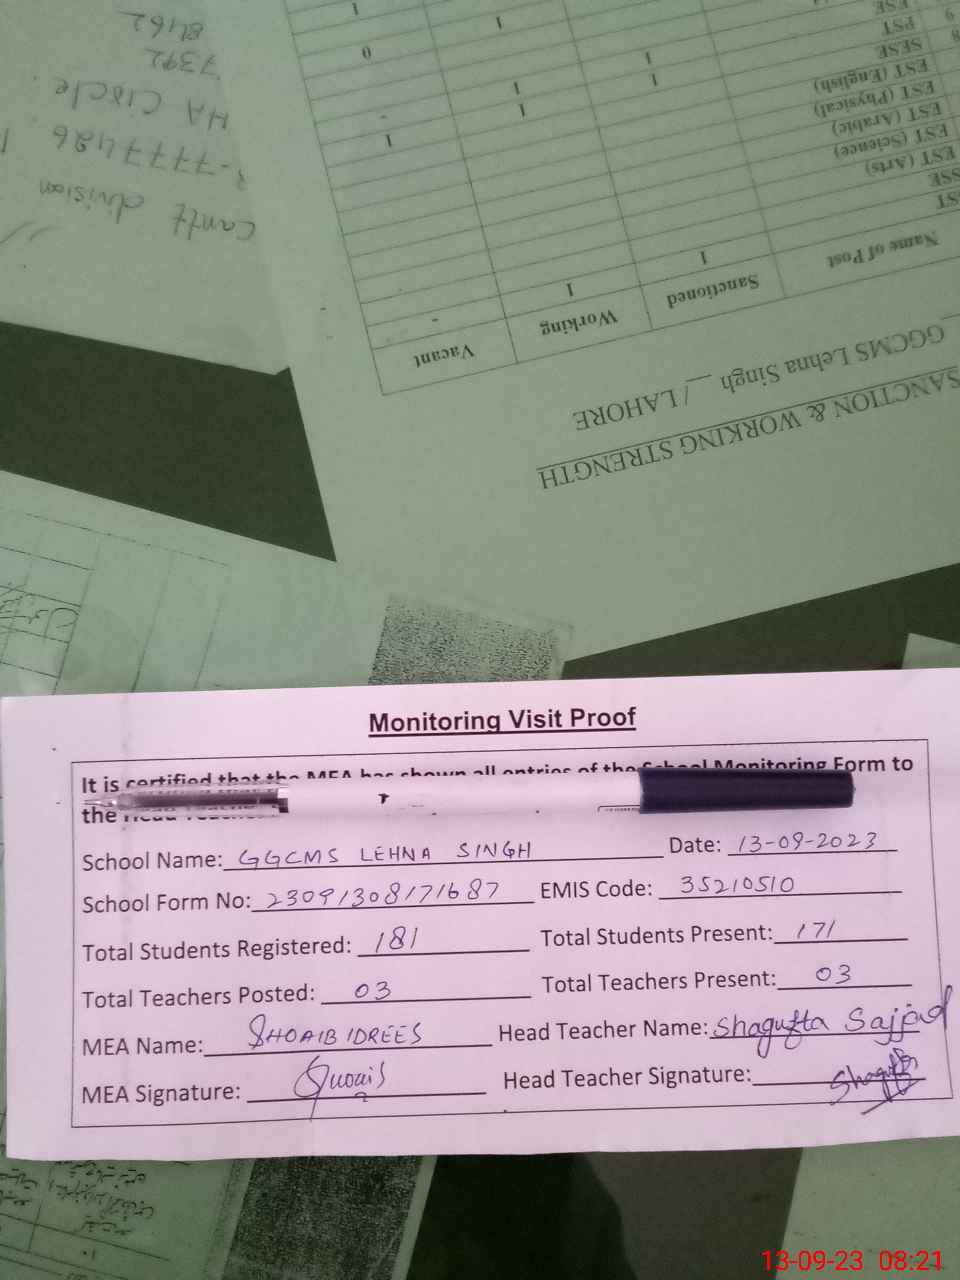 SANCTION & WORKING STRENGTH
GGCMS Lehna Singh / LAHORE
Name of Post Sanctioned Working Vacant
1 1 -
SSE
EST (Arts)
EST (Science)
EST (Arabic)
EST (Physical)
EST (English)
SESE
PST 1 1 1
ESE 1 1 -
1 0
1
Cantt division
HA Circle
7392
8462
Monitoring Visit Proof
It is certified that the MEA has shown all entries of the School Monitoring Form to
the Head Teacher
School Name: GGCMS LEHNA SINGH Date: 13-09-2023
School Form No: 23091308171687 EMIS Code: 35210510
Total Students Registered: 181 Total Students Present: 171
Total Teachers Posted: 03 Total Teachers Present: 03
MEA Name: SHOAIB IDREES Head Teacher Name: Shagufta Sajjad
MEA Signature: Shoaib Head Teacher Signature: Shagufta
13-09-23 08:21